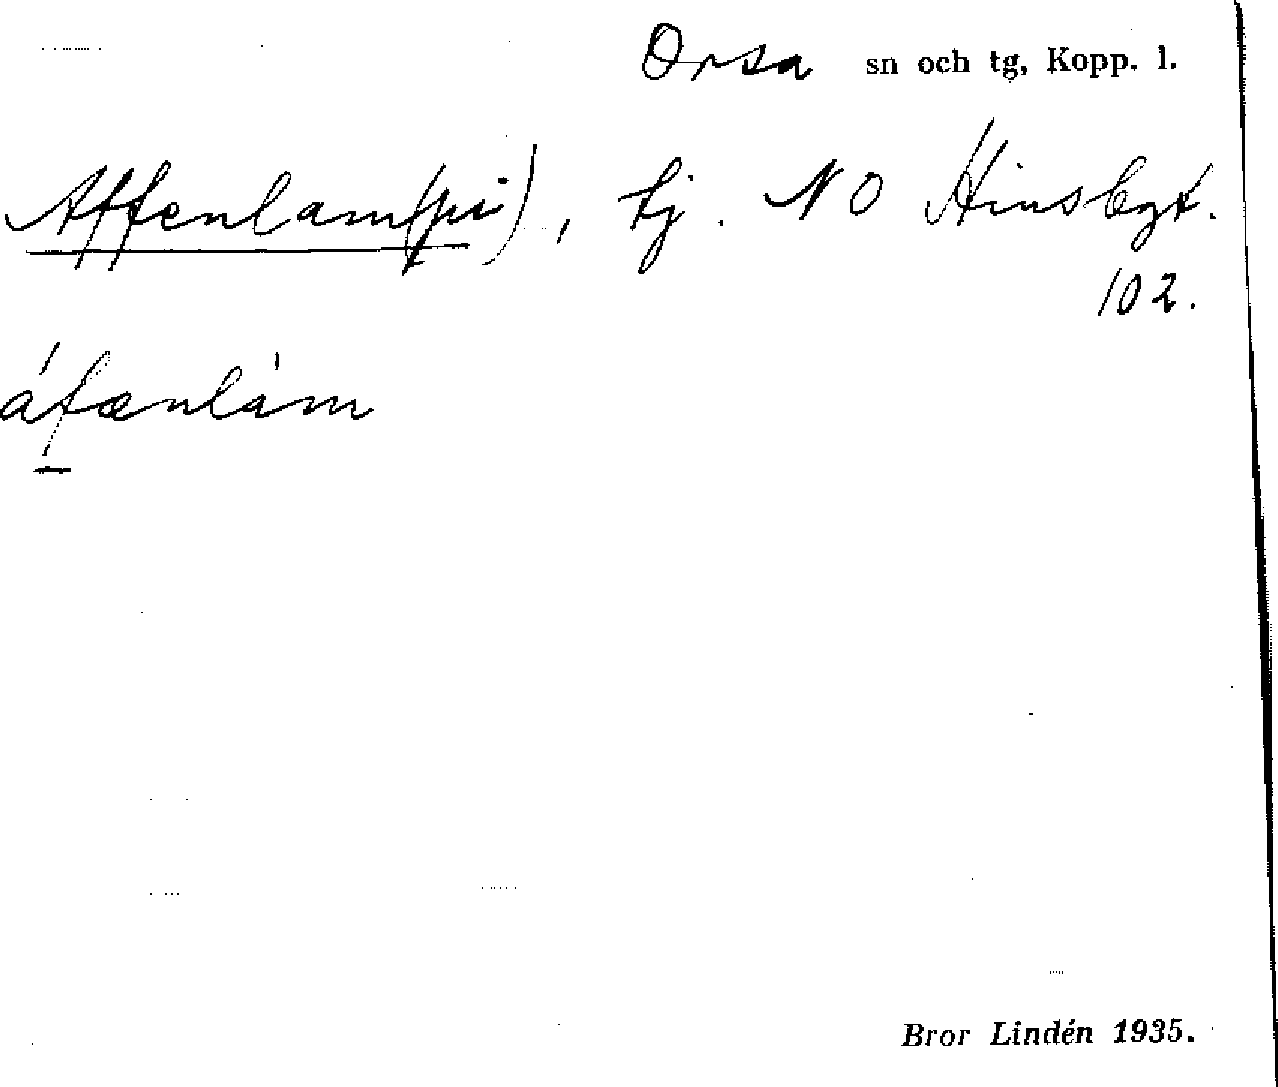 Orsa sn och tg, Kopp. l.
Affenlam(pi), tj. NO Hinsbgt.
102.
áfænlám
Bror Lindén 1935.